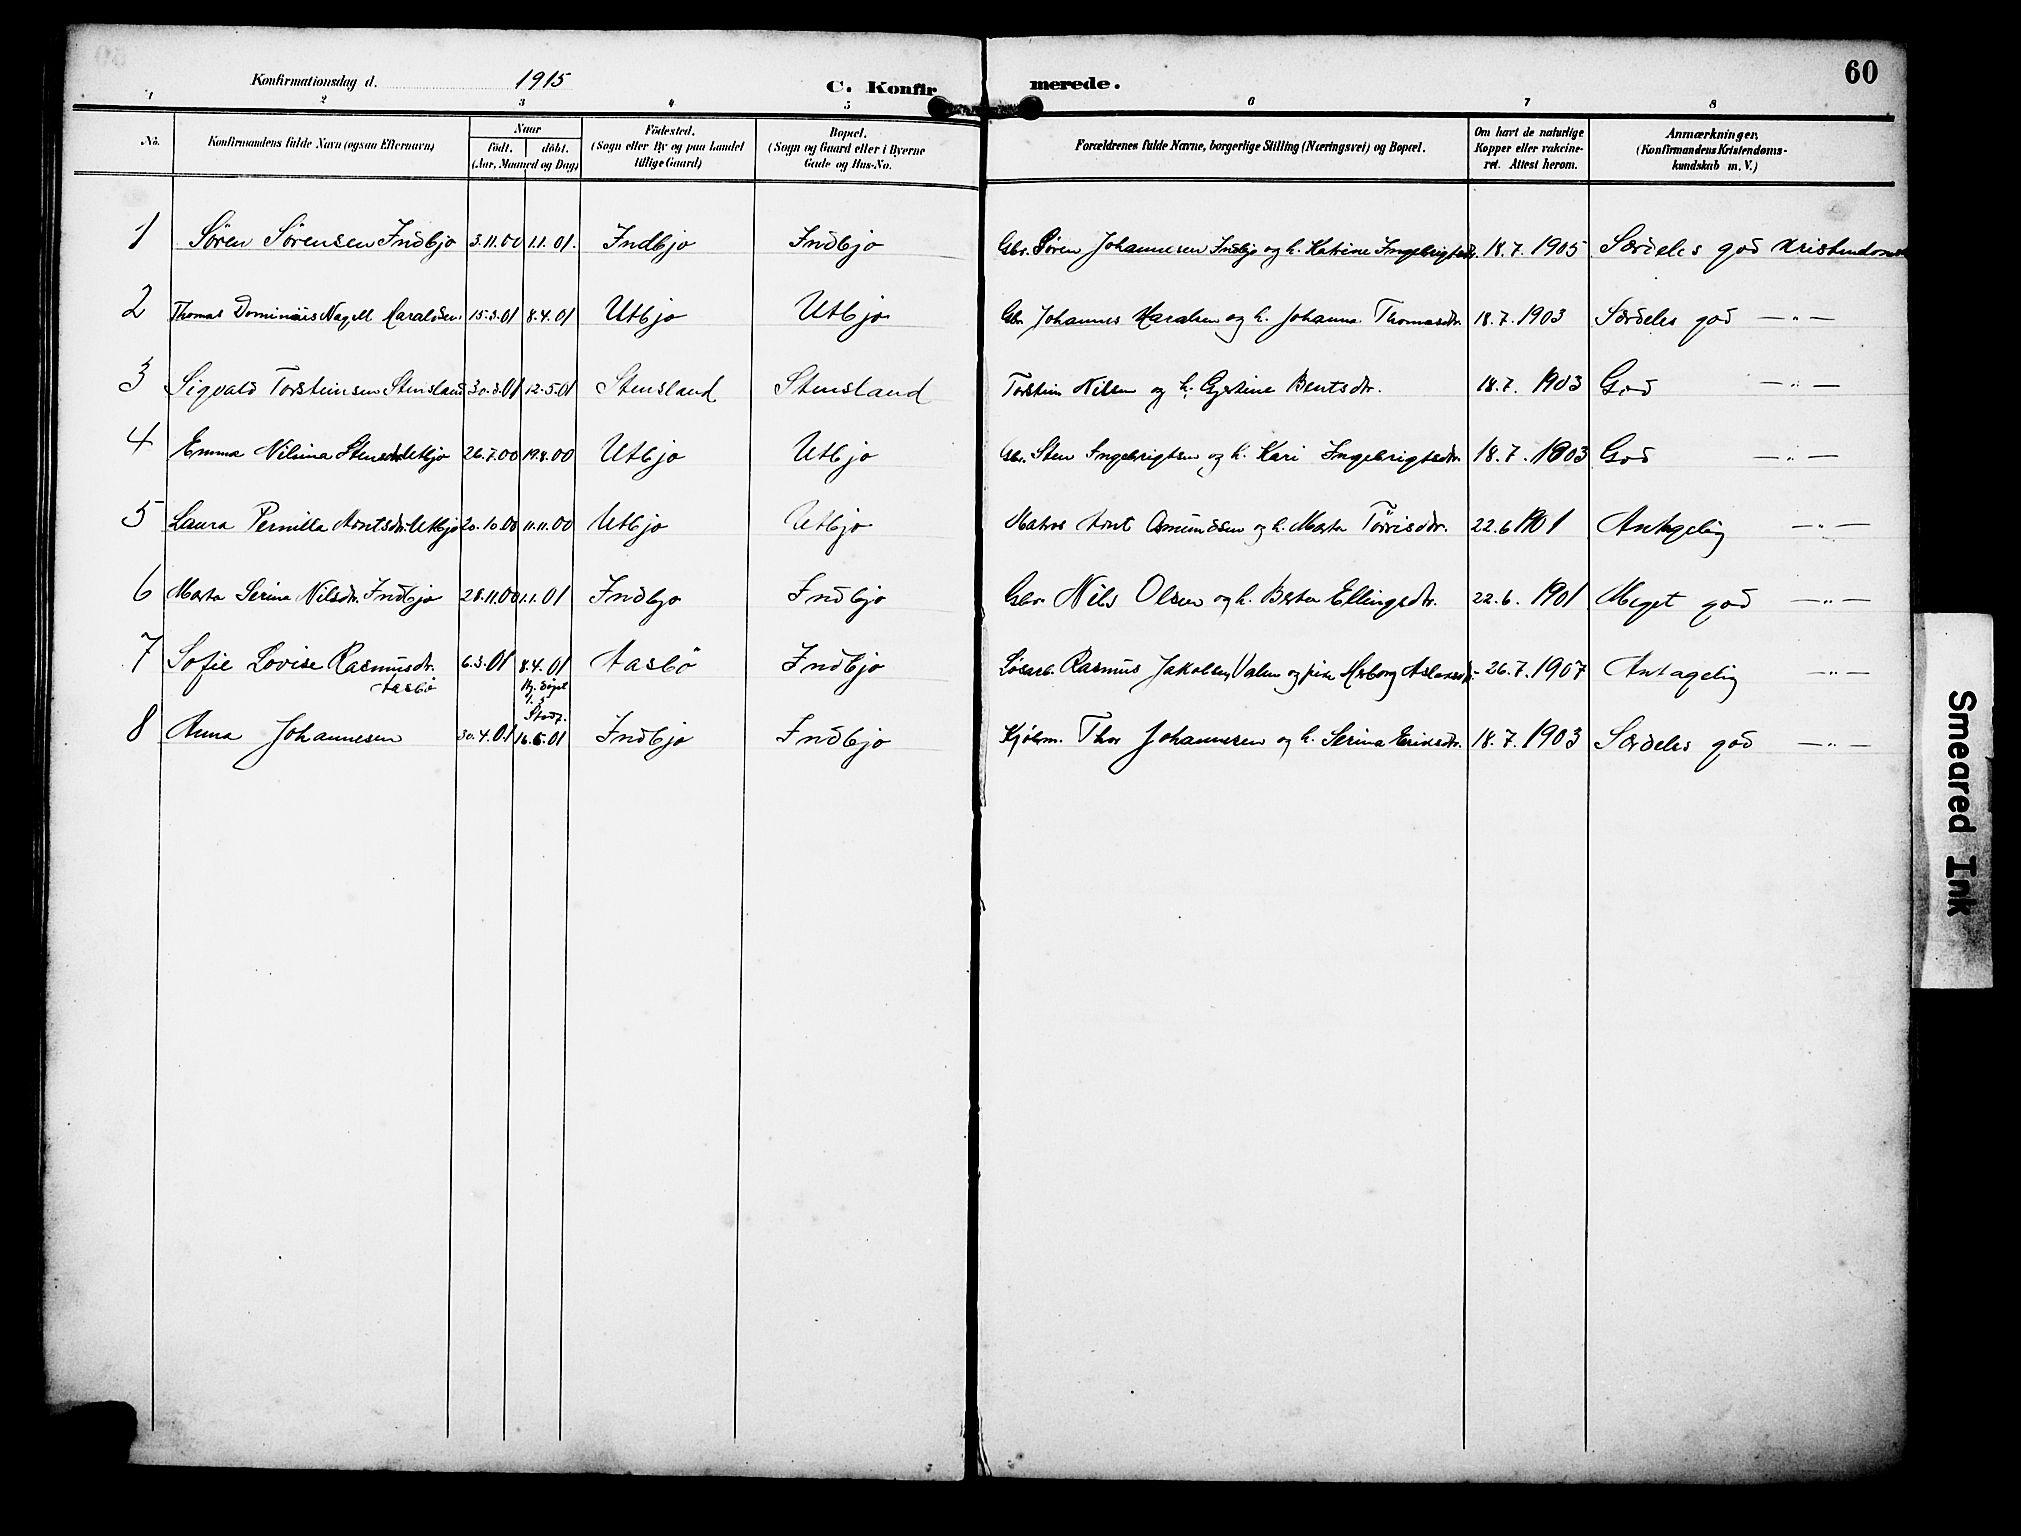 60
Konfirmationsdag d. 1915 C. Konfirmerede.
1 2 3 4 5 6 7 8
No. Konfirmandens fulde Navn (ogsaa Efternavn) Naar født. døbt. (Aar, Maaned og Dag) Fødested. (Sogn eller By og paa Landet tillige Gaard) Bopæl. (Sogn og Gaard eller i Byerne Gade og Hus-No. Forældrenes fulde Navne, borgerlige Stilling (Næringsvei) og Bopæl. Om havt de naturlige Kopper eller vakcineret. Attest herom. Anmærkninger. (Konfirmandens Kristendomskundskab m. V.)
1 Søren Sørensen Indbjo 3.11.00 1.1.01. Indbjo Indbjo Gbr. Søren Johannesen Indbjo og h. Katrine Ingebrigtsdr. 18.7.1905 Særdeles god Kristendomsk
2 Thomas Dominicus Nagell Haraldsen 15.3.01 8.4.01 Utbjo Utbjo Gbr. Johannes Haralsen og h. Johanna Thomasdr. 18.7.1903 Særdeles god — " —
3 Sigvald Torsteinsen Stensland 30.3.01 12.5.01 Stensland Stensland Torstein Nilsen og h. Gjertine Bentsdr. 18.7.1903 God — " —
4 Emma Nilsina Stensdr. Utbjo 26.7.00 19.8.00 Utbjo Utbjo Gbr. Sten Ingebrigtsen og h. Kari Ingebrigtsdr. 18.7.1903 God — " —
5 Laura Pernilla Arntsdr. Utbjo 20.10.00 11.11.00 Utbjo Utbjo Matros Arnt Asmundsen og h. Marta Tørrisdr. 22.6.1901 Antagelig — " —
6 Marta Serina Nilsdr. Indbjo 28.11.00 1.1.01 Indbjo Indbjo Gbr. Nils Olsen og h. Berta Ellingsdr. 22.6.1901 Meget god — " —
7 Sofie Lovise Rasmusdr. 6.3.01 8.4.01 Aasbø Indbjo Løsarb. Rasmus Jakobsen Valen og pike Herborg Aslaksdr. 26.7.1907 Antagelig — " —
Aasbø
8 Anna Johannesen 30.4.01 16.5.01 Indbjo Indbjo Kjøbm. Thor Johannesen og h. Serina Eriksdr. 18.7.1903 Særdeles god — " —
Smeared Ink